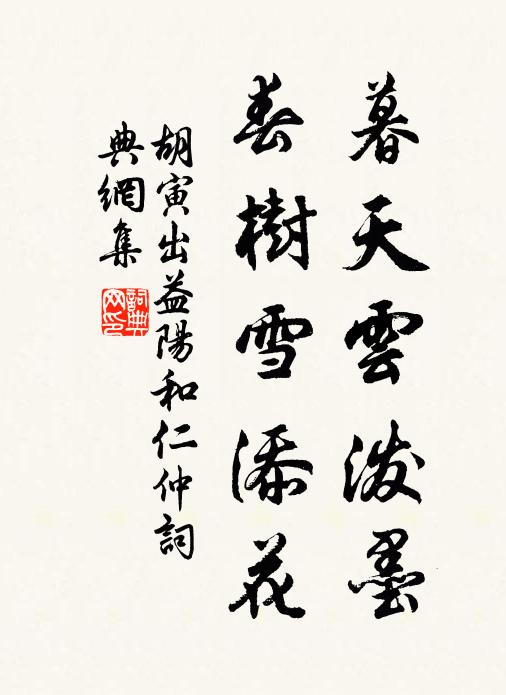 暮天雲潑墨
春樹雪添花
胡寅出益陽和仁仲詞
典網集
詞典
网印